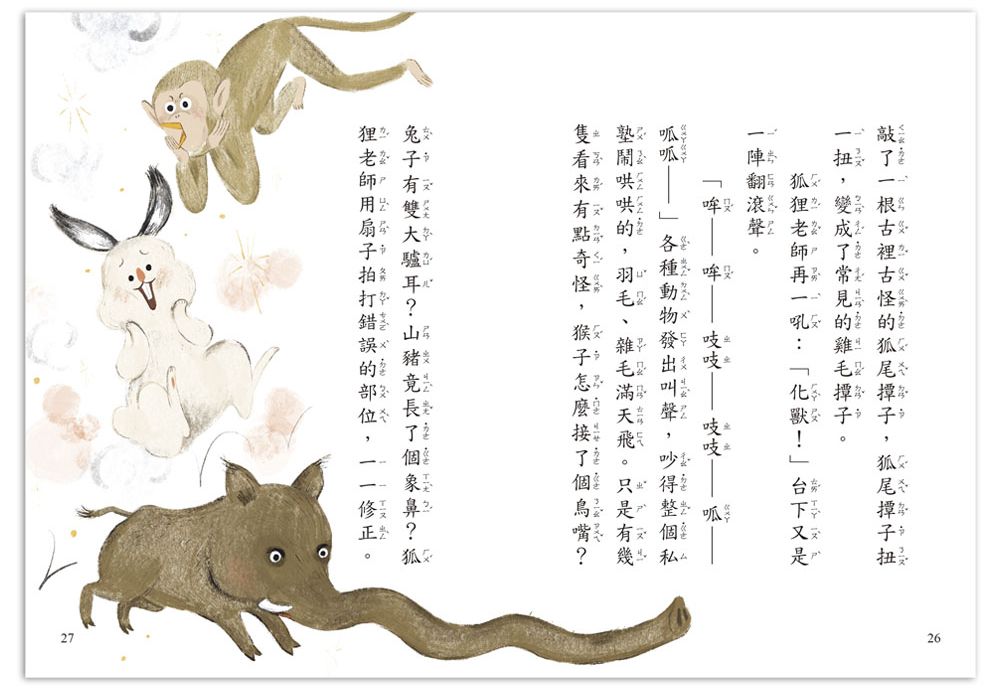 敲了一根古裡古怪的狐尾撢子，狐尾撢子扭
一扭，變成了常見的雞毛撢子。
狐狸老師再一吼：「化獸！」台下又是
一陣翻滾聲。
「哞——哞——吱吱——吱吱——呱——
呱呱——」各種動物發出叫聲，吵得整個私
塾鬧哄哄的，羽毛、雜毛滿天飛。只是有幾
隻看來有點奇怪，猴子怎麼接了個鳥嘴？
26
兔子有雙大驢耳？山豬竟長了個象鼻？狐
狸老師用扇子拍打錯誤的部位，一一修正。
27